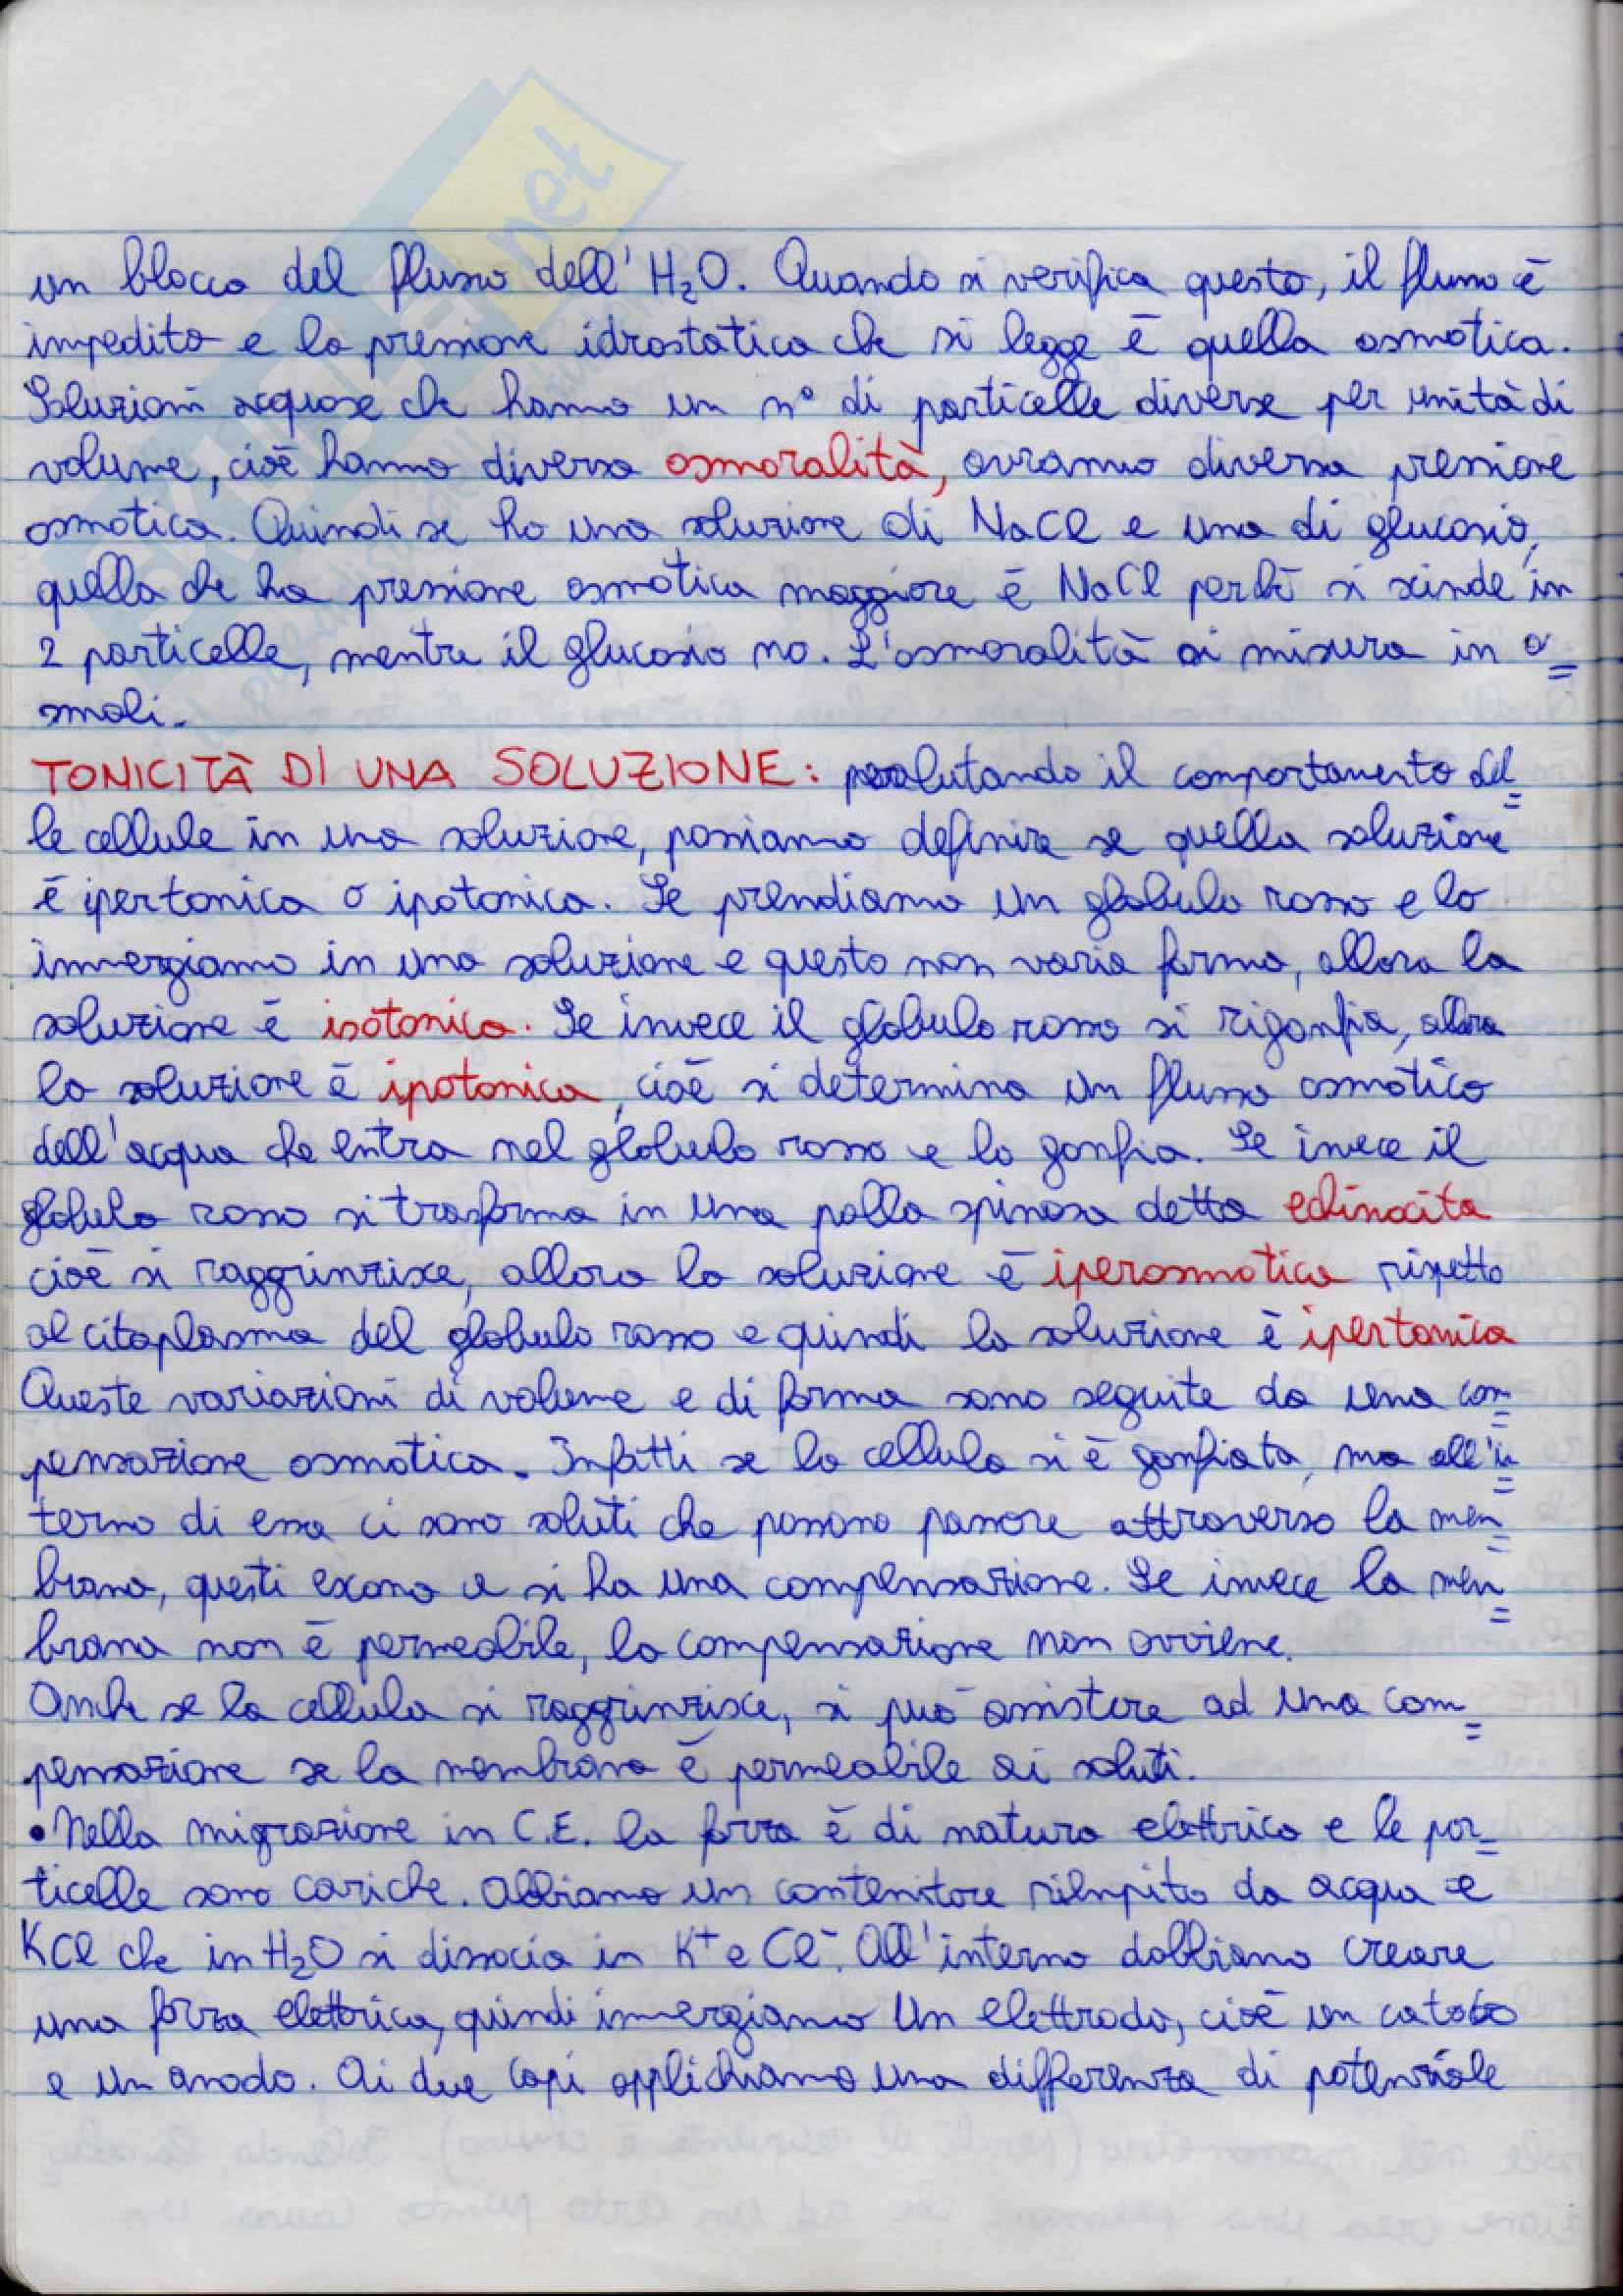 un blocco del flusso dell'H₂O. Quando si verifica questo, il flusso è
impedito e la pressione idrostatica che si legge è quella osmotica.
Soluzioni acquose che hanno un n° di particelle diverse per unità di
volume, cioè hanno diversa osmoralità, avranno diversa pressione
osmotica. Quindi se ho una soluzione di NaCl e una di glucosio,
quella che ha pressione osmotica maggiore è NaCl perchè si scinde in
2 particelle, mentre il glucosio no. L'osmoralità si misura in o=
smoli.
TONICITÀ DI UNA SOLUZIONE: valutando il comportamento del=
le cellule in una soluzione, possiamo definire se quella soluzione
è ipertonica o ipotonica. Se prendiamo un globulo rosso e lo
immergiamo in una soluzione e questo non varia forma, allora la
soluzione è isotonica. Se invece il globulo rosso si rigonfia, allora
la soluzione è ipotonica, cioè si determina un flusso osmotico
dell'acqua che entra nel globulo rosso e lo gonfia. Se invece il
globulo rosso si trasforma in una palla spinosa detta echinocita
cioè si raggrinzisce, allora la soluzione è iperosmotica rispetto
al citoplasma del globulo rosso e quindi la soluzione è ipertonica
Queste variazioni di volume e di forma sono seguite da una com=
pensazione osmotica. Infatti se la cellula si è gonfiata, ma all'in=
terno di essa ci sono soluti che possono passare attraverso la mem=
brana, questi escono e si ha una compensazione. Se invece la mem=
brana non è permeabile, la compensazione non avviene.
Anche se la cellula si raggrinzisce, si può assistere ad una com=
pensazione se la membrana è permeabile ai soluti.
• Nella migrazione in C.E. la forza è di natura elettrica e le par=
ticelle sono cariche. Abbiamo un contenitore riempito da acqua e
KCl che in H₂O si dissocia in K⁺ e Cl⁻. All'interno dobbiamo creare
una forza elettrica, quindi immergiamo un elettrodo, cioè un catodo
e un anodo. Ai due capi applichiamo una differenza di potenziale
net